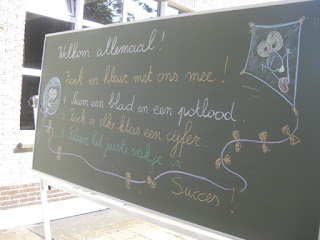 Welkom allemaal!
Zoek en kleur met ons mee!
1. Neem een blad en een potlood.
2. Zoek in elke klas een cijfer.
3. Kleur het juiste vakje in
Succes!